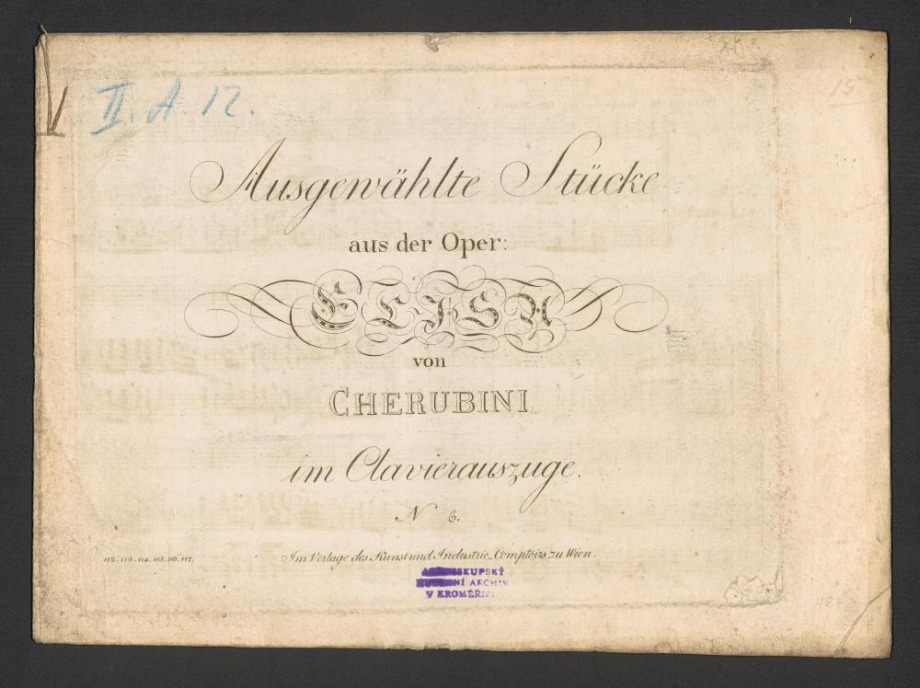 II. A. 12.
Ausgewählte Stücke
aus der Oper:
ELISA
von
CHERUBINI
im Clavierauszuge.
N 6.
Im Verlage des Kunst und Industrie Comptoirs zu Wien.
HUDEBNÍ ARCHIV
V KROMĚŘÍŽI